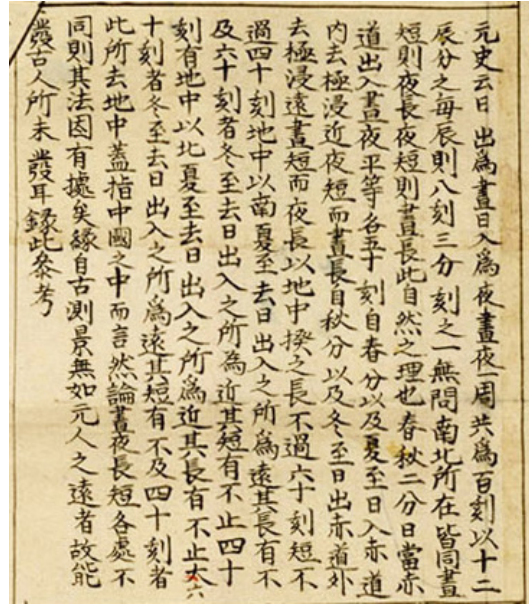 元史云日 出爲晝日入爲夜晝夜一周共爲百刻以十二
辰分之每辰則八刻三分刻之一無問南北所在皆同晝
短則夜長夜短則晝長此自然之理也春秋二分日當赤
道出入晝夜平等各五十刻自春分以及夏至日入赤道
內去極浸近夜短而晝長自秋分以及冬至日出赤道外
去極浸遠晝短而夜長以地中揆之長不過六十刻短不
過四十刻地中以南夏至去日出入之所爲遠其長有不
及六十刻者冬至去日出入之所為近其短有不止四十
刻有地中以北夏至去日出入之所爲近其長有不止大六
十刻者冬至去日出入之所爲遠其短有不及四十刻者
此所去地中蓋指中國之中而言然論晝夜長短各處不
同則其法因有據矣緣自古測景無如元人之遠者故能
發古人所未發耳錄此參考